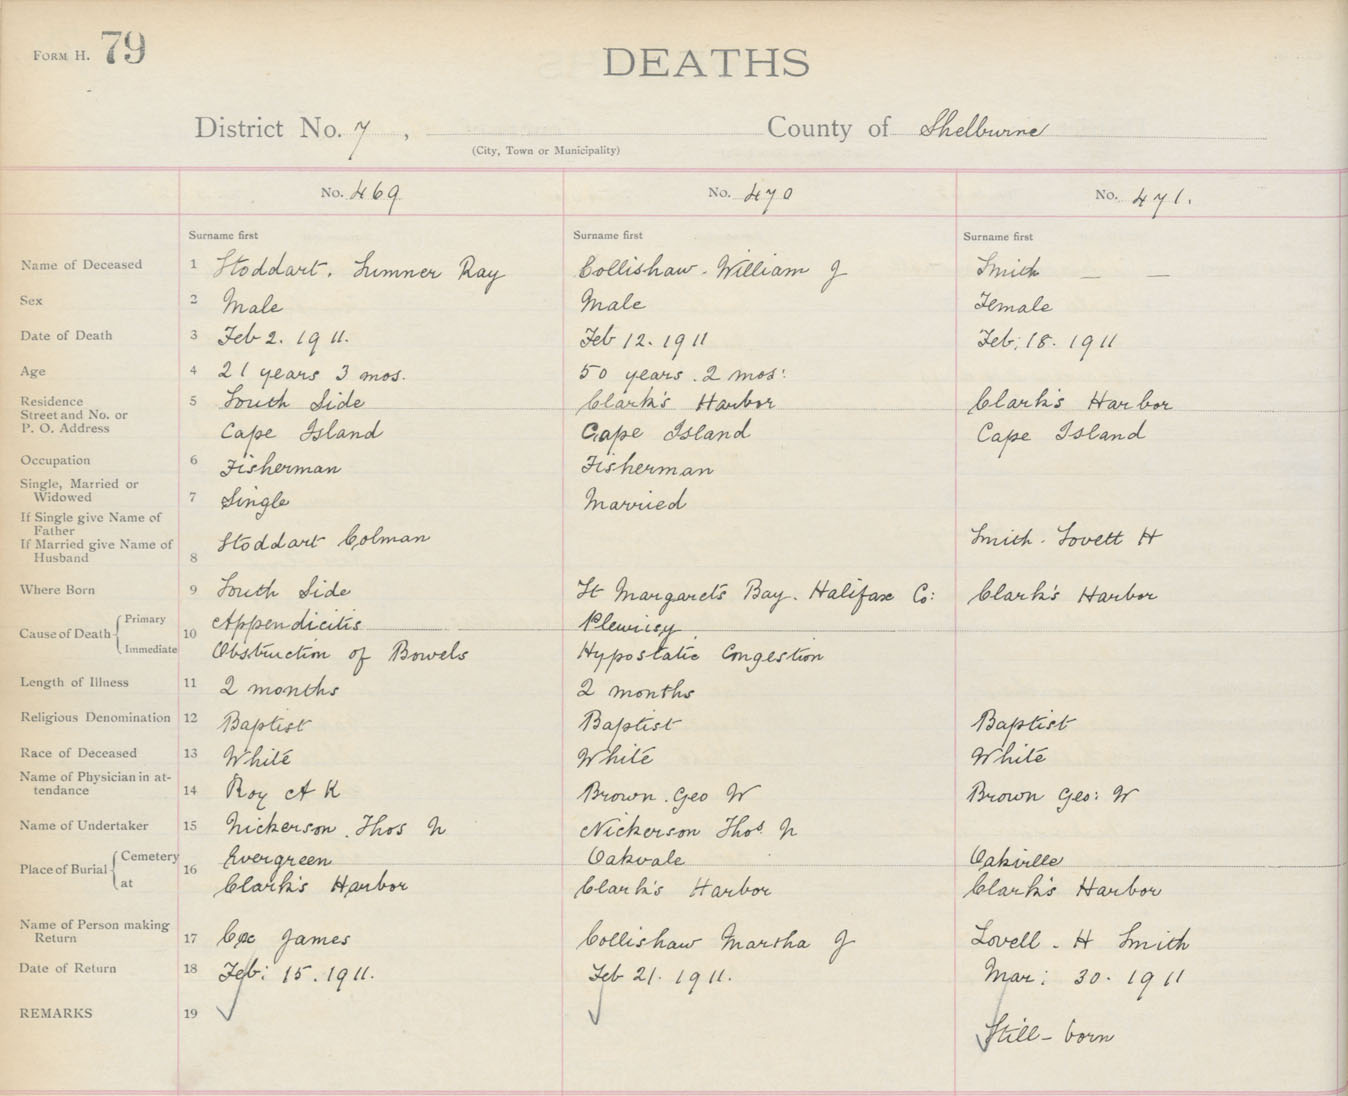 FORM H. 79
DEATHS
District No. 7, County of Shelburne
(City, Town or Municipality)
No. 469 No. 470 No. 471.
Surname first Surname first Surname first
Name of Deceased 1 Stoddart. Sumner Ray Collishaw. William J Smith — —
Sex 2 Male Male Female
Date of Death 3 Feb 2. 1911. Feb 12. 1911 Feb. 18. 1911
Age 4 21 years 3 mos. 50 years. 2 mos:
Residence 5 South Side Clark's Harbor Clark's Harbor
Street and No. or
P. O. Address Cape Island Cape Island Cape Island
Occupation 6 Fisherman Fisherman
Single, Married or
Widowed 7 Single Married
If Single give Name of
Father
If Married give Name of Stoddart Colman Smith. Lovett H
Husband 8
Where Born 9 South Side St Margarets Bay. Halifax Co: Clark's Harbor
Cause of Death Primary 10 Appendicitis Pleurisy
Immediate Obstruction of Bowels Hypostatic Congestion
Length of Illness 11 2 months 2 months
Religious Denomination 12 Baptist Baptist Baptist
Race of Deceased 13 White White White
Name of Physician in at-
tendance 14 Roy A K Brown. Geo W Brown Geo: W
Name of Undertaker 15 Nickerson. Thos N Nickerson Thos N
Place of Burial Cemetery 16 Evergreen Oakvale Oakville
at Clark's Harbor Clark's Harbor Clark's Harbor
Name of Person making
Return 17 Cox James Collishaw Martha J Lovell. H Smith
Date of Return 18 Feb: 15. 1911. Feb 21. 1911. Mar: 30. 1911
REMARKS 19 Still-born